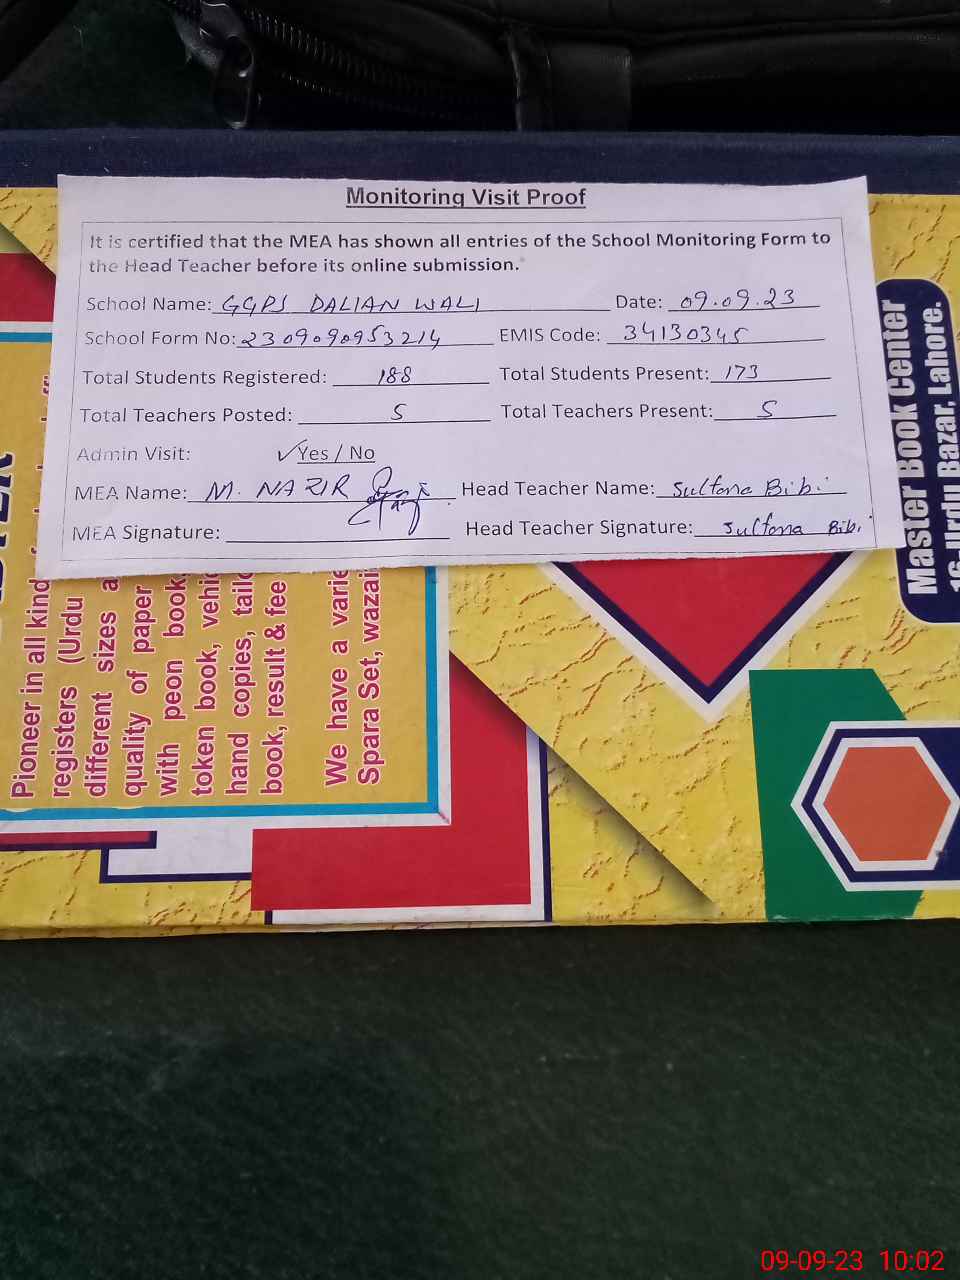 Monitoring Visit Proof
It is certified that the MEA has shown all entries of the School Monitoring Form to
the Head Teacher before its online submission.
School Name: GGPS DALIAN WALI Date: 09.09.23
School Form No: 2309090953214 EMIS Code: 34130345
Total Students Registered: 188 Total Students Present: 173
Total Teachers Posted: 5 Total Teachers Present: 5
Admin Visit: ✓Yes / No
MEA Name: M. NAZIR Head Teacher Name: Sultana Bibi
MEA Signature: Head Teacher Signature: Sultana Bibi
Pioneer in all kind
registers (Urdu
different sizes a
quality of paper
with peon book
token book, vehic
hand copies, tailo
book, result & fee
We have a varie
Spara Set, wazai
Master Book Center
16-Urdu Bazar, Lahore.
09-09-23 10:02